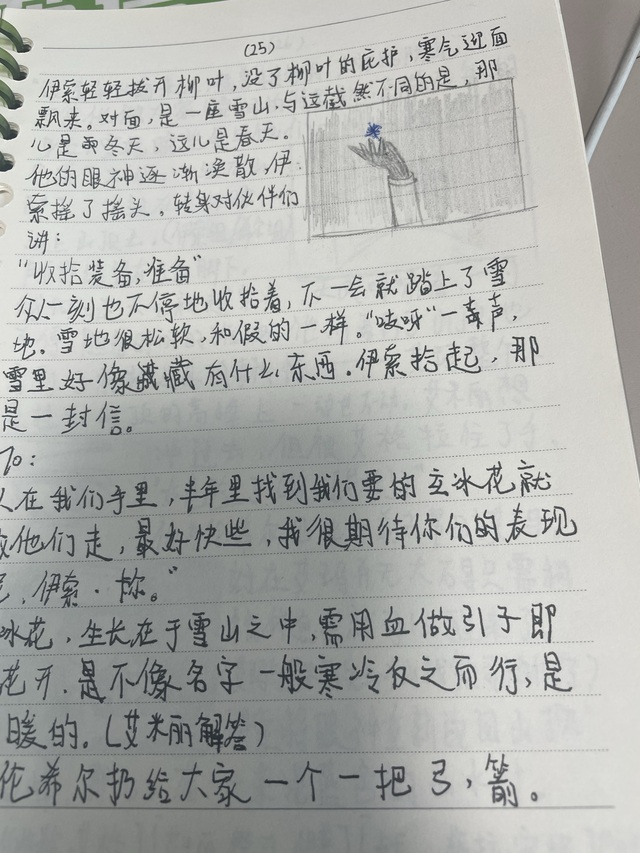 (25)
伊索轻轻拔开柳叶，没了柳叶的庇护，寒气迎面
飘来。对面，是一座雪山。与这截然不同的是，那
儿是冬天，这儿是春天。
他的眼神逐渐涣散，伊
索摇了摇头，转身对伙伴们
讲：
"收拾装备，准备"
众人一刻也不停地收拾着，不一会就踏上了雪
地。雪地很松软，和假的一样。"吱呀"一声，
雪里好像藏有什么东西。伊索拾起，那
是一封信。
To：
人在我们手里，半年里找到我们要的玄冰花就
他们走，最好快些，我很期待你们的表现
，伊索·
冰花，生长在于雪山之中，需用血做引子即
花开。是不像名字一般寒冷反之而行，是
暖的。(艾米丽解答)
伦希尔扔给大家一个一把弓，箭。